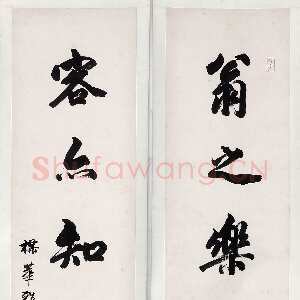 翁之樂
客亦知
楳華
Shufawang.CN